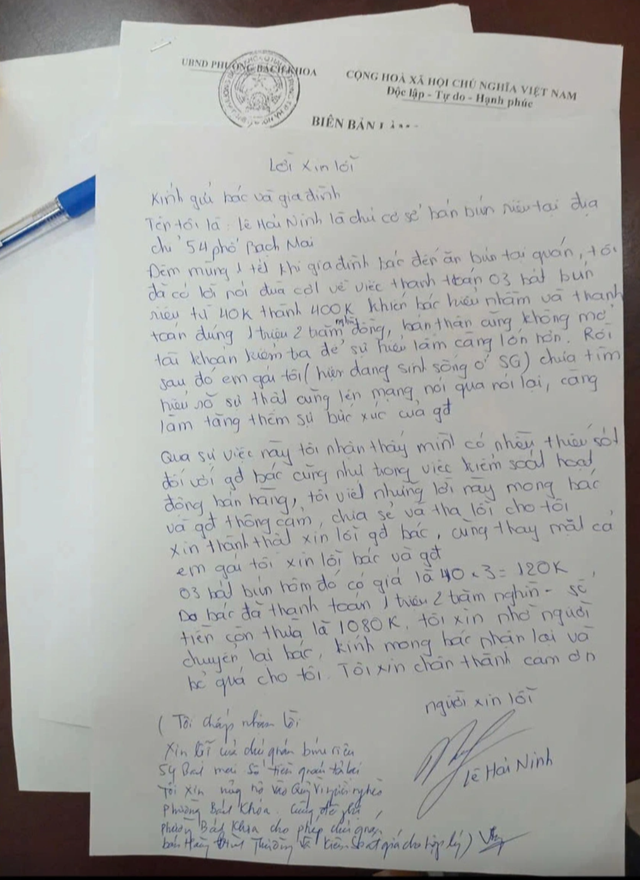 UBND PHƯỜNG BÁCH KHOA
CỘNG HOÀ XÃ HỘI CHỦ NGHĨA VIỆT NAM
Độc lập - Tự do - Hạnh phúc
BIÊN BẢN
Lời xin lỗi
Kính gửi bác và gia đình
Tên tôi là: Lê Hải Ninh là chủ cơ sở bán bún riêu tại địa
chỉ 54 phố Bạch Mai
Đêm mùng 1 tết khi gia đình bác đến ăn bún tại quán, tôi
đã có lời nói đùa cợt về việc thanh toán 03 bát bún
riêu từ 40K thành 400K khiến bác hiểu nhầm và thanh
toán đúng 1 triệu 2 trăm nghìn đồng, bản thân cũng không mở
tài khoản kiểm tra để sự hiểu lầm càng lớn hơn. Rồi
sau đó em gái tôi (hiện đang sinh sống ở SG) chưa tìm
hiểu rõ sự thật cũng lên mạng nói qua nói lại, càng
làm tăng thêm sự bức xúc của gđ
Qua sự việc này tôi nhận thấy mình có nhiều thiếu sót
đối với gđ bác cũng như trong việc kiểm soát hoạt
động bán hàng, tôi viết những lời này mong bác
và gđ thông cảm, chia sẻ và tha lỗi cho tôi
xin thành thật xin lỗi gđ bác, cùng thay mặt cả
em gái tôi xin lỗi bác và gđ
03 bát bún hôm đó có giá là 40 x 3 = 120K
Do bác đã thanh toán 1 triệu 2 trăm nghìn - số
tiền còn thừa là 1080K, tôi xin nhờ người
chuyển lại bác, kính mong bác nhận lại và
bỏ quá cho tôi. Tôi xin chân thành cảm ơn
người xin lỗi
Lê Hải Ninh
( Tôi chấp nhận lời
xin lỗi của chủ quán bún riêu
54 Bạch mai số tiền quán trả lại
Tôi xin ủng hộ vào Quỹ Vì người nghèo
phường Bách Khoa. Cũng
phường Bách Khoa cho phép chủ quán
bán Hàng Bình Thường và kiểm soát giá cho hợp lý)